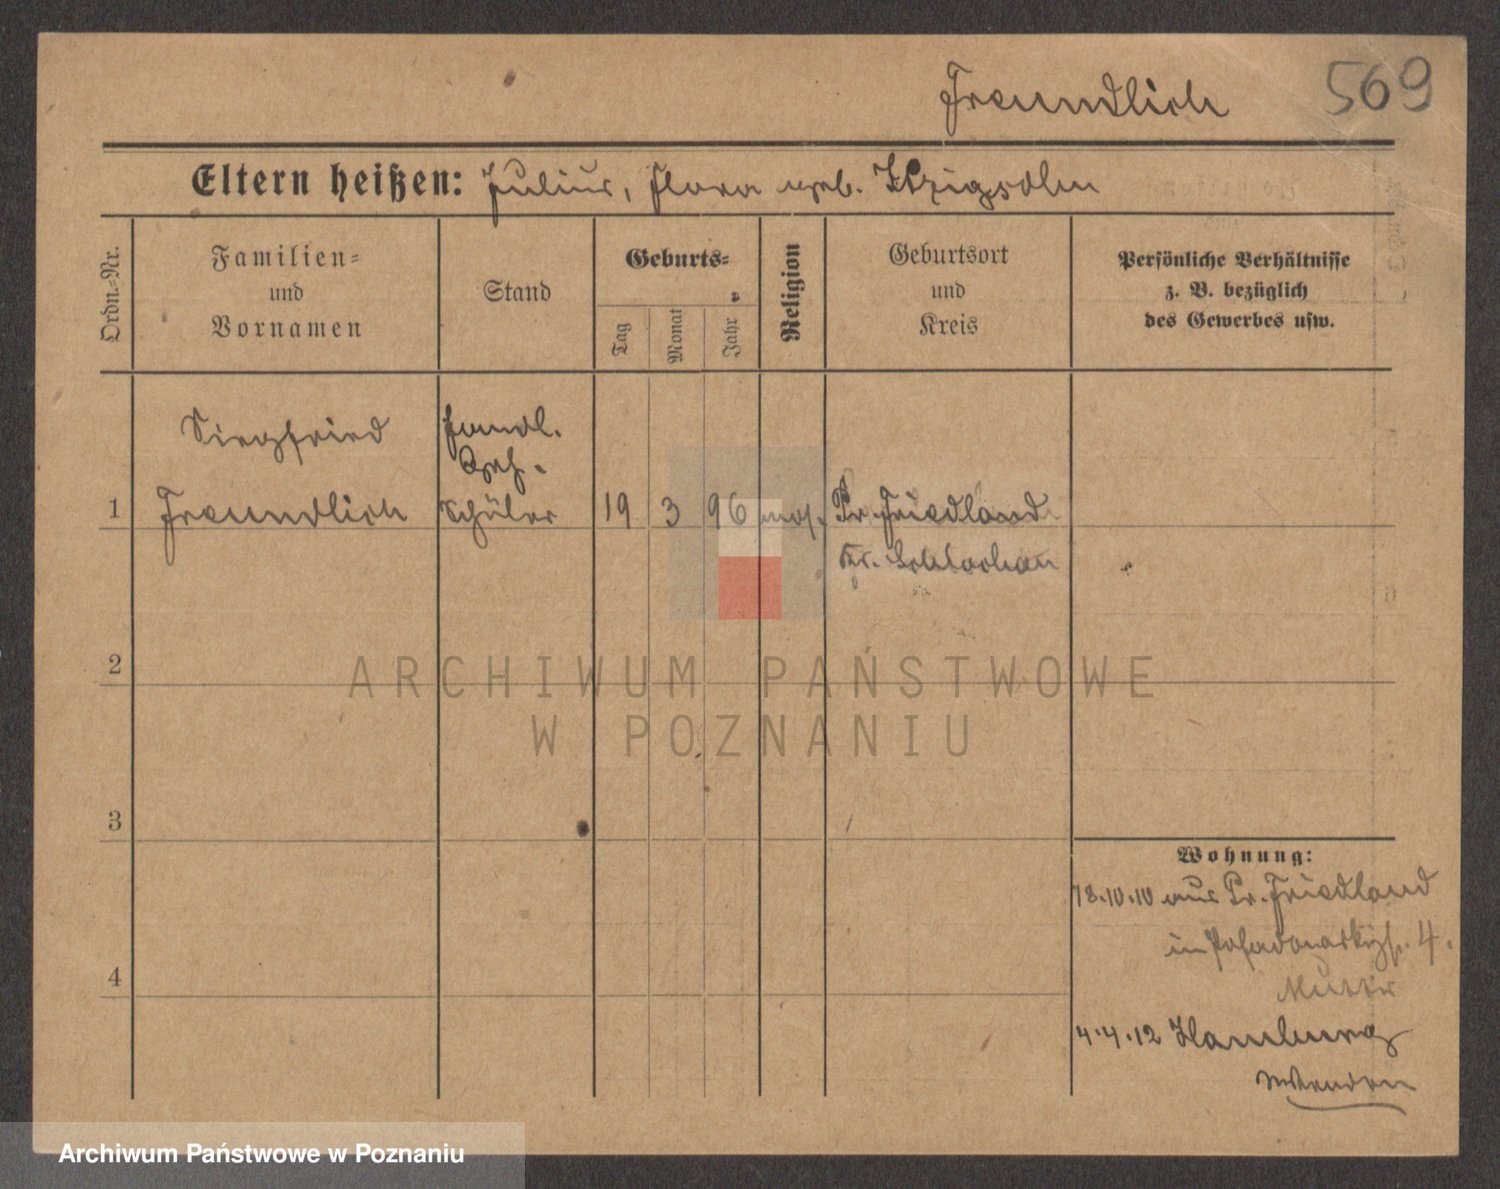 Freundlich 569
Eltern heißen: Julius, Flora geb. Itzigsohn
Ordn.-Nr.
Familien-
und
Vornamen
Stand
Geburts-
Tag
Monat
Jahr
Religion
Geburtsort
und
Kreis
Persönliche Verhältnisse
z. B. bezüglich
des Gewerbes usw.
Siegfried
Handl.
Geh.
1 Freundlich Schüler 19 3 96 mos. Pr. Friedland
Kr. Schlochau
2
ARCHIWUM PAŃSTWOWE
W POZNANIU
3
Wohnung:
18.10.10 aus Pr. Friedland
in 4.
Mutter
4
4.4.12 Hamburg
wenden
Archiwum Państwowe w Poznaniu